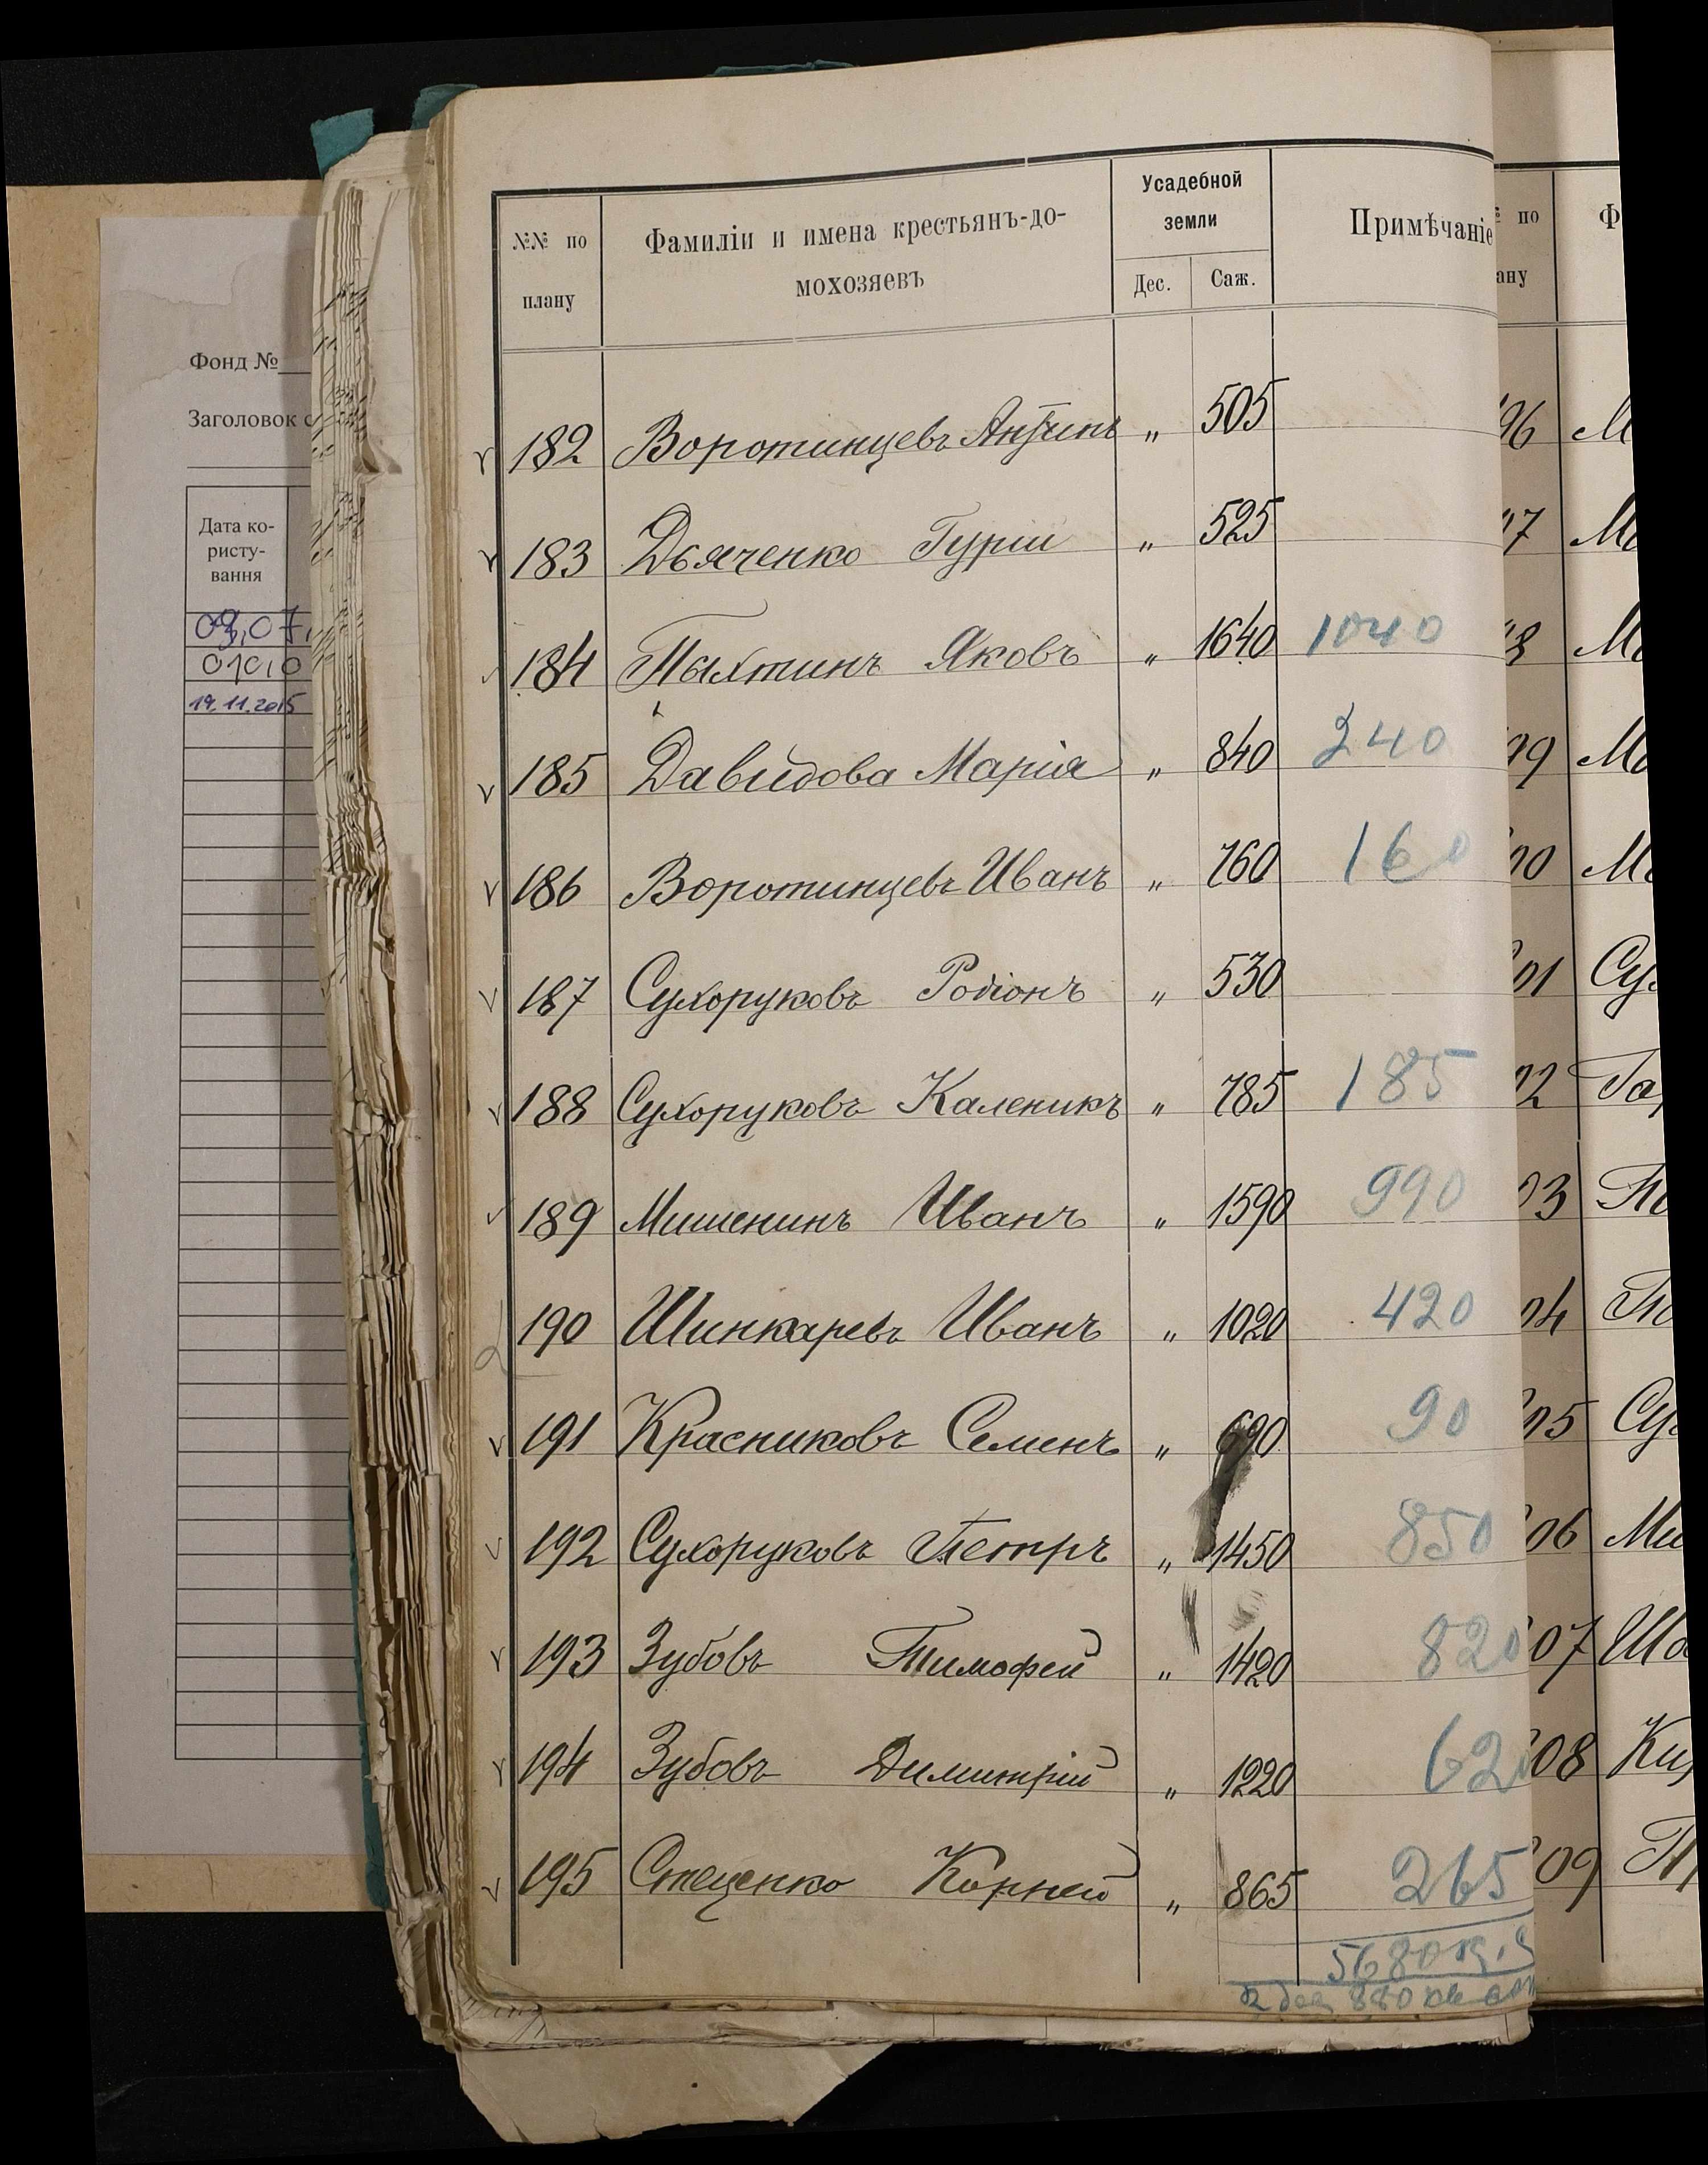 Фонд №
Заголовок
Дата ко-
ристу-
вання
09.07.
19.11.2015
№№ по
плану
Фамиліи и имена крестьянъ-до-
мохозяевъ
Усадебной
земли
Дес.
Саж.
Примѣчаніе
182 Воротинцевъ " 505
183 Дьяченко Гурій " 525
184 Пыхтинъ Яковъ " 1640 1040
185 Давидова Марія " 840 240
186 Воротинцевъ Иванъ " 760 160
187 Сухоруковъ Родіонъ " 530
188 Сухоруковъ Каленикъ " 785 185
189 Мишенинъ Иванъ " 1590 990
190 Шинкаревъ Иванъ " 1020 420
191 Красниковъ Семенъ " 690 90
192 Сухоруковъ Петръ " 1450 850
193 Зубовъ Тимофей " 1420 820
194 Зубовъ Димитрій " 1220 620
195 Стеценко Корней " 865 265
5680 кв. с
2 дес 880 кв саж